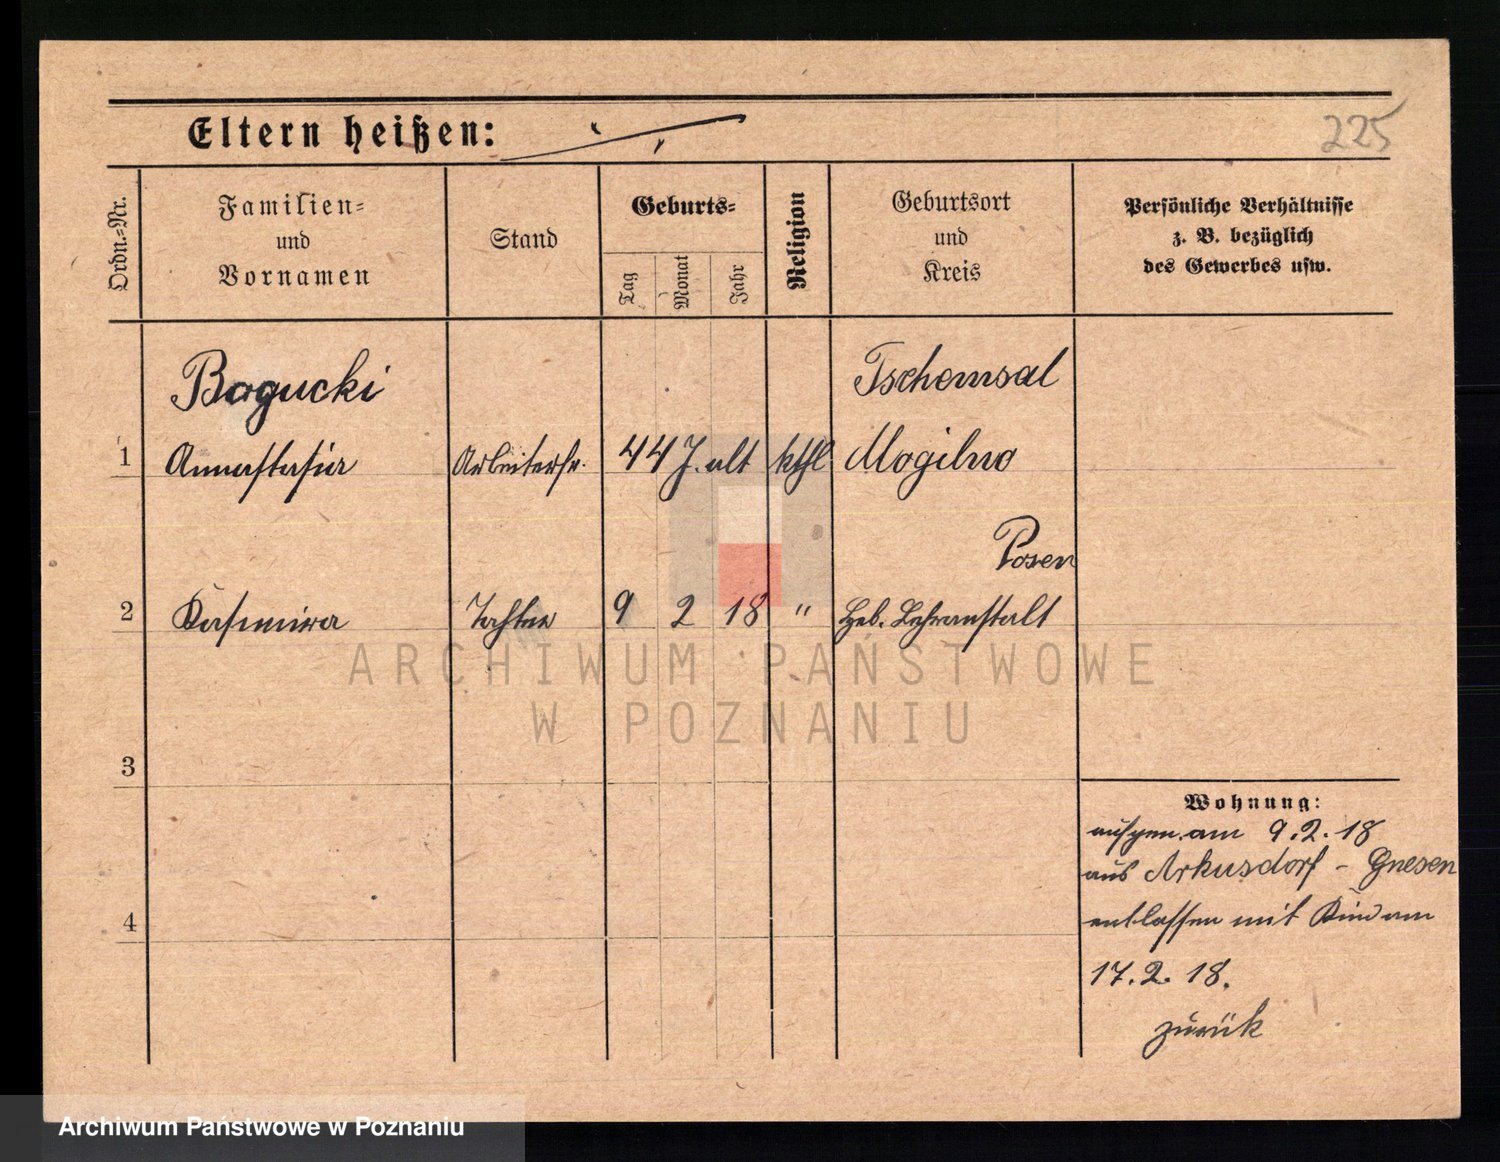 Eltern heißen:
225
Ordn.=Nr.
Familien=
und
Vornamen
Stand
Geburts=
Tag
Monat
Jahr
Religion
Geburtsort
und
Kreis
Persönliche Verhältnisse
z. B. bezüglich
des Gewerbes usw.
Bogucki
Tschemsal
1 Annastasia Arbeiterfr. 44 J. alt kthl Mogilno
Posen
2 Kasimira Tochter 9 2 18 " Heb. Lehranstalt
ARCHIWUM PAŃSTWOWE
W POZNANIU
3
4
Wohnung:
aufgen. am 9.2.18
aus Arkusdorf - Gnesen
entlassen mit Kind am
17.2.18.
zurük
Archiwum Państwowe w Poznaniu